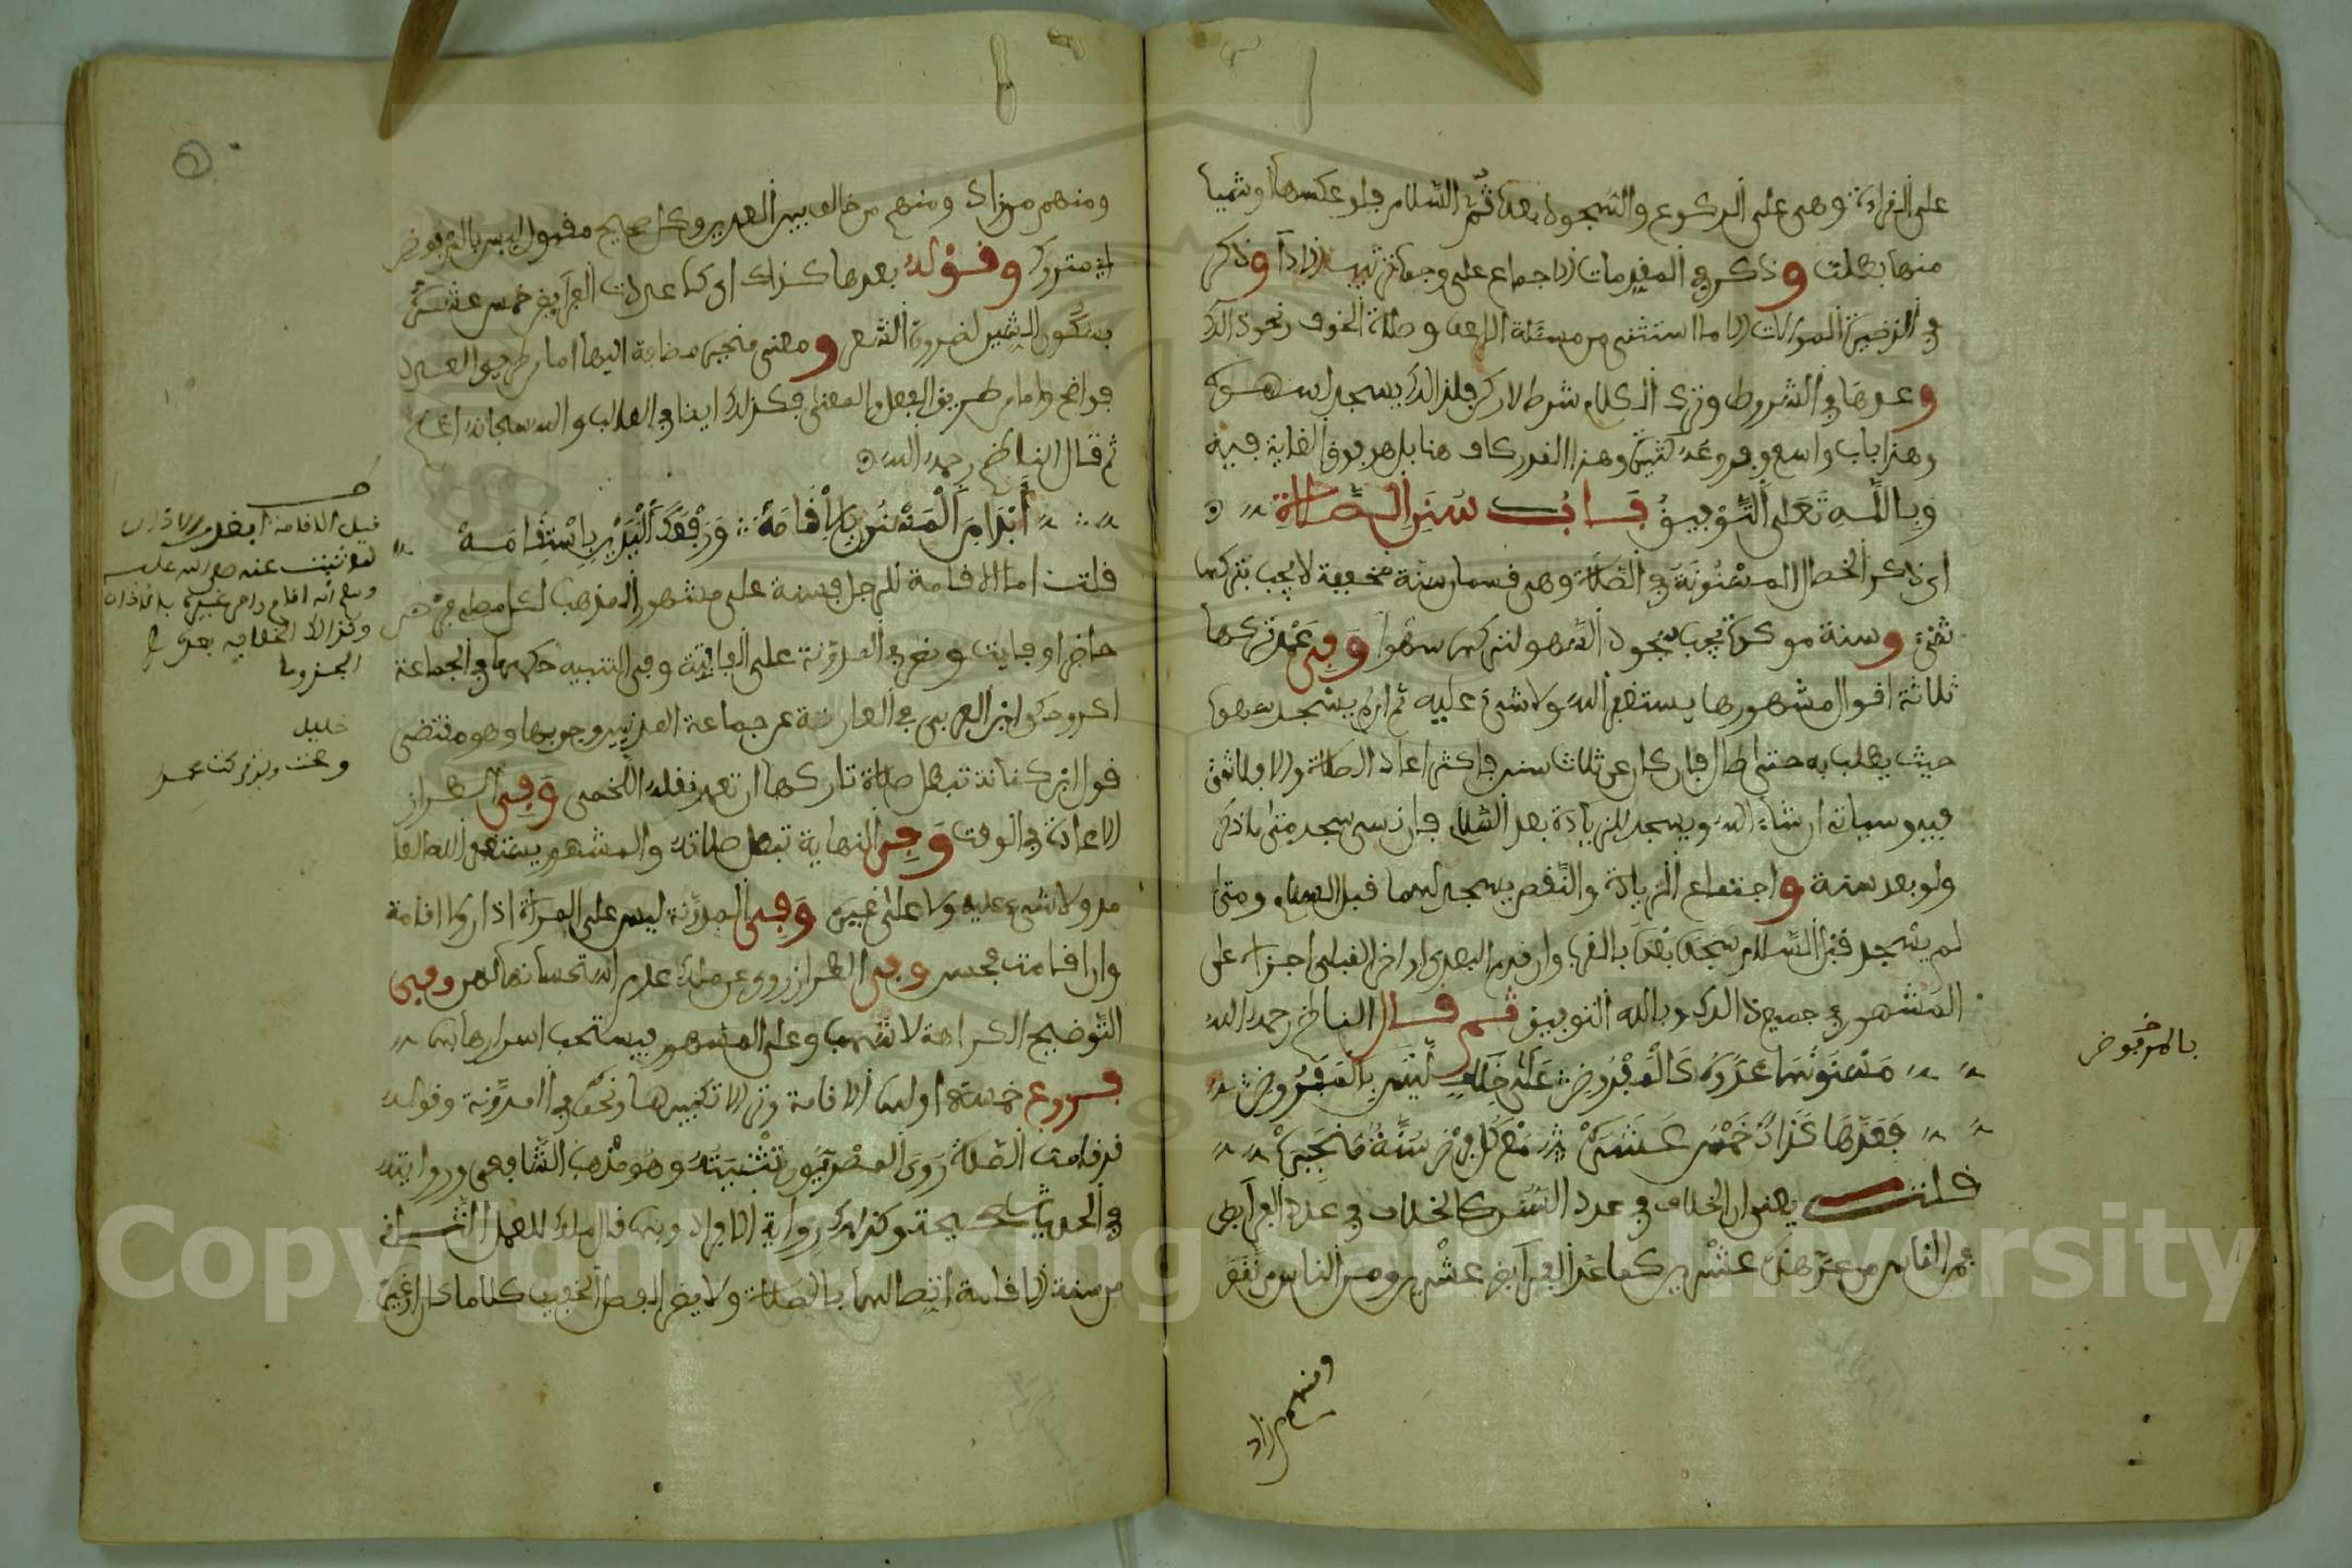 على القراءة وهي على الركوع والسجود بعده ثم السلام فلو عكسها أو شيا
منها بطلت وذكر في المقدمات الاجماع على وجوب ترتيب الاداء وذكر
في الذخيرة الموالات الا ما استثني من مسئلة الراعف وصلاة الخوف ونحو ذلك
وعدها في الشروط وترك الكلام شرط لا ركن فلذلك يسجد لسهوه
وهذا باب واسع وفروعه كثيرة وهذا القدر كاف هنا بل هو فوق الغاية فيه
وبالله تعلى التوفيق باب سنن الصلاة
اي ذكر الخصال المسنونة في الصلاة وهي قسمان سنة خفيفة لا يجب بتركها
شيء وسنة موكدة يجب سجود السهو لتركها سهوا وفي عمد تركها
ثلاثة اقوال مشهورها يستغفر الله ولا شيء عليه ثم ان لم يسجد سهوا
حيث يطلب به حتى طال فان كان عن ثلاث سنن فاكثر اعاد الصلاة والا فلا شيء
فيه وسياتي ان شاء الله ويسجد للزيادة بعد السلام فان نسي سجد متى ما ذكر
ولو بعد سنة واجتماع الزيادة والنقص يسجد لهما قبل السلام ومتى
لم يسجد قبل السلام سجد بعد بالقرب وان قدم البعدي او اخر القبلي اجزاه على
المشهور في جميع ذلك وبالله التوفيق ثم قال الناظم رحمه الله
مسنونها عدوه كالمفروض على خلاف ليس بالمفروض
فعدها كذاك خمس عشره مع كل فرض سنة منجبره
قلت يعني ان الخلاف في عدد السنن كالخلاف في عدد الفرايض
فمن الناس من عدهن عشرين كما عد الفرايض عشرين ومن الناس من نقص
ومنهم من زاد
بالمرفوض
ومنهم من زاد ومنهم من خالف بين العددين وكل صحيح مقبول ليس بالمرفوض
اي متروك وقوله بعدها كذاك اي كما عددت الفرايض خمس عشرة
بسكون الشين لضرورة الشعر ومعنى منجبره مضافة اليها اما من طريق العدد
فواضح واما من طريق الفعل والمعنى فكذلك ايضا في الغالب والله سبحانه اعلم
ثم قال الناظم رحمه الله
أبدا من المسنون بالاقامة ورفعك اليدين باستقامه
قلت اما الاقامة للرجل فسنة على مشهور المذهب لكل مصل فرض
حاضر او فايت ونص في المدونة على الفايتة وفي التنبيه حكمها في الجماعة
اكد وحكى ابن العربي في العارضة عن جماعة المدنيين وجوبها وهو مقتضى
قول ابن كنانة تبطل صلاة تاركها ان تعمد نقله اللخمي وفي الطراز
الاعادة في الوقت وفي النهاية تبطل صلاته والمشهور يستغفر الله العا
مد ولا شيء عليه ولا على غيره وفي المدونة ليس على المرأة اذان ولا اقامة
وان اقامت فحسن وفي الطراز روي عن مالك عدم استحسانها لهن وفي
التوضيح الكراهة لاشهب وعلى المشهور يستحب اسرارها بها
فروع خمسة اولها الاقامة وتر الا تكبيرها ونحوه في المدونة وقوله
قد قامت الصلاة روى المصريون تثنيته وهو مذهب الشافعي وروايته
في الحديث صحيحة وكذلك رواية الافراد وبها قال مالك للعمل الثاني
من سنة الاقامة اتصالها بالصلاة ولا يضر الفصل الخفيف كلاما كان او غيره
قبل الاقامة
لم تثبت عنه صلى الله عليه
خليل